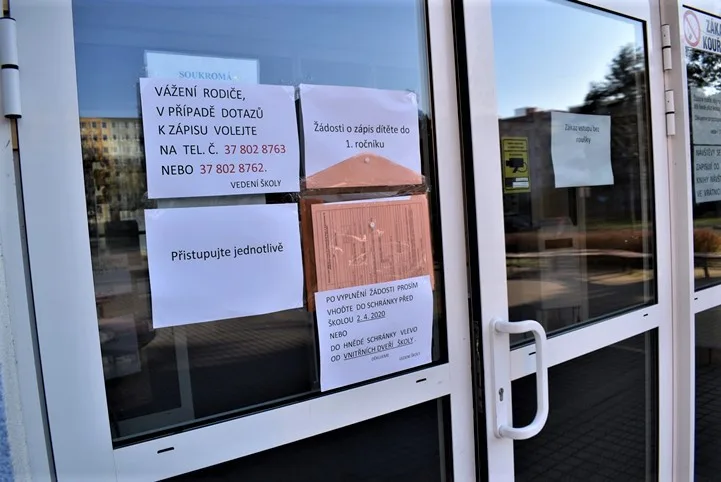 SOUKROMÁ
VÁŽENÍ RODIČE,
V PŘÍPADĚ DOTAZŮ
K ZÁPISU VOLEJTE
NA TEL. Č. 37 802 8763
NEBO 37 802 8762.
VEDENÍ ŠKOLY
Žádosti o zápis dítěte do
1. ročníku
Přistupujte jednotlivě
PO VYPLNĚNÍ ŽÁDOSTI PROSÍM
VHOĎTE DO SCHRÁNKY PŘED
ŠKOLOU 2. 4. 2020
NEBO
DO HNĚDÉ SCHRÁNKY VLEVO
OD VNITŘNÍCH DVEŘÍ ŠKOLY.
DĚKUJEME VEDENÍ ŠKOLY
Zákaz vstupu bez
roušky
ZÁKA
KOUŘ